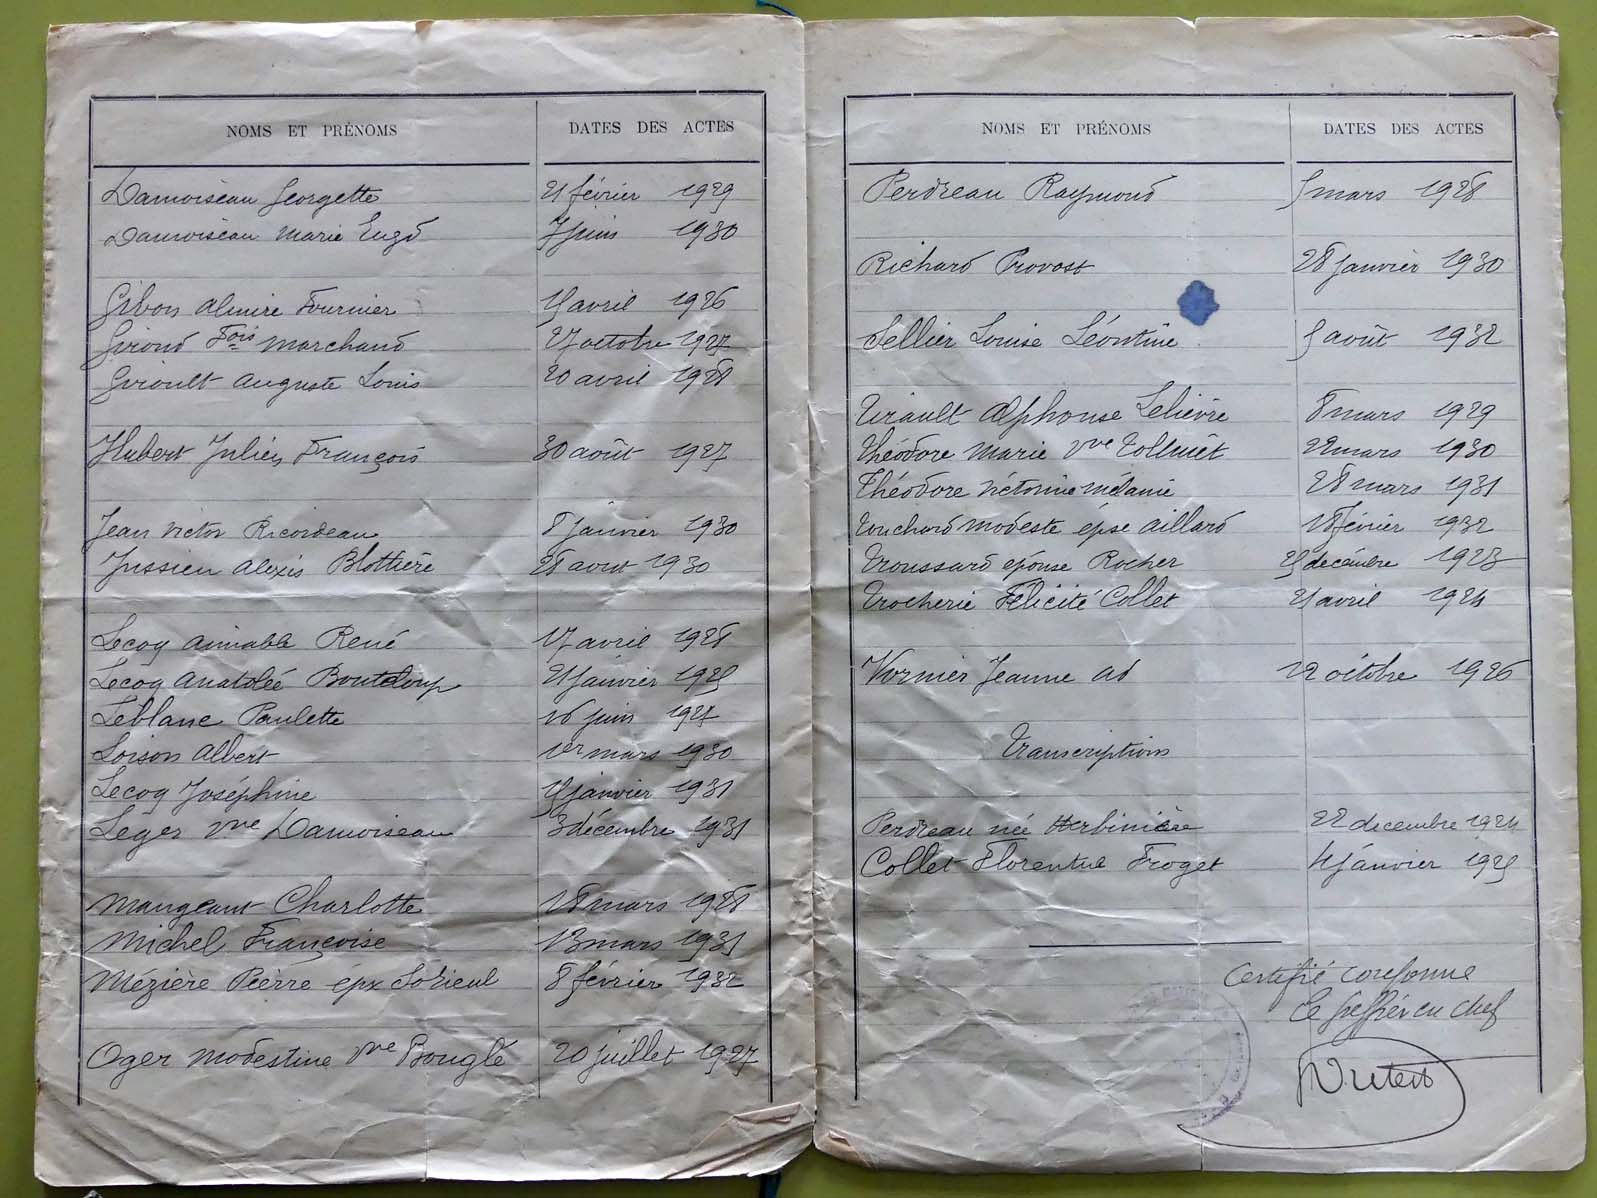 NOMS ET PRÉNOMS DATES DES ACTES
Damoiseau Georgette 21 février 1929
Damoiseau Marie Eugd 7 juin 1930
Gibon Almire Fournier avril 1926
Girond Fois Marchand 27 octobre 1927
Girault Auguste Louis 20 avril 1928
Hubert Julien François 30 août 1927
Jean Victor Ricordeau 8 janvier 1930
Jussien Alexis Blottière 28 aout 1930
Lecoq Aimable René 17 avril 1928
Lecoq Anatolée Bouteloup 21 janvier 1925
Leblanc Paulette 16 juin 1927
Loison Albert 1er mars 1930
Lecoq Joséphine janvier 1931
Leger Vve Damoiseau 3 décembre 1931
Mangeant Charlotte 18 mars 1928
Michel Françoise 13 mars 1931
Mézière Pierre épx 8 février 1932
Oger Modestine Vve Bouglé 20 juillet 1927
NOMS ET PRÉNOMS DATES DES ACTES
Perdreau Raymond 5 mars 1928
Richard Provost 28 janvier 1930
Sellier Louise Léontine 5 août 1932
Tirault Alphonse Lelièvre 8 mars 1929
Théodore Marie Vve 22 mars 1930
Théodore Victorine Mélanie 28 mars 1931
Touchard Modeste épse Aillard 18 février 1932
Troussard épouse Rocher 25 décembre 1923
Trocherie Félicité Collet 21 avril 1924
Vornier Jeanne ad 12 octobre 1926
Transcriptions
Perdreau née Herbinière 22 decembre 1924
Collet Florentine Froget janvier 1925
Certifié conforme
Le greffier en chef